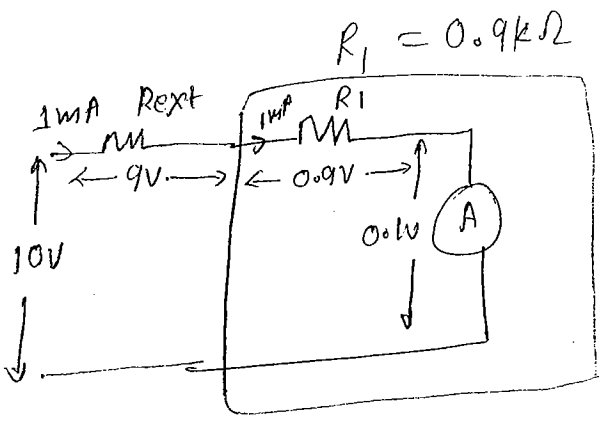 R₁ = 0.9kΩ
1mA Rext 1mA R1
9V. 0.9V.
10V 0.1V A